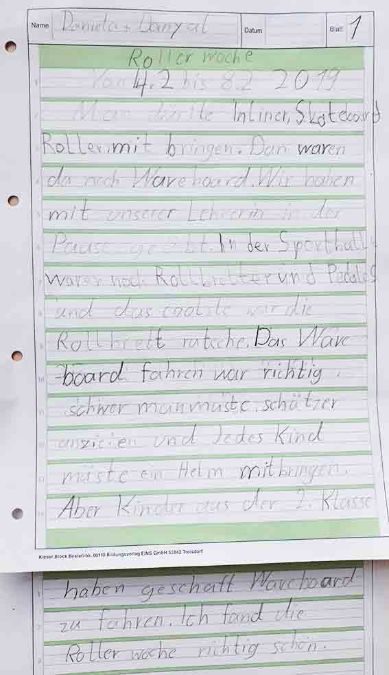 Name Daniela + Danyal Datum Blatt 1
Roller woche
Von 4.2 bis 8.2 2019
Man dürfte Inliner, Skateboard
Roller, mit bringen. Dan waren
da noch Waveboard. Wir haben
mit unserer Lehrerin in der
Pause geübt. In der Sporthalle
waren noch Rollbretter und Pedalos
und das coolste war die
Rollbrett rutsche. Das Wave
board fahren war richtig
schwer man muste schützer
anziehen und Jedes Kind
müste ein Helm mitbringen.
Aber Kinder aus der 2. Klasse
haben geschaft Waveboard
zu fahren. Ich fand die
Roller woche richtig schön.